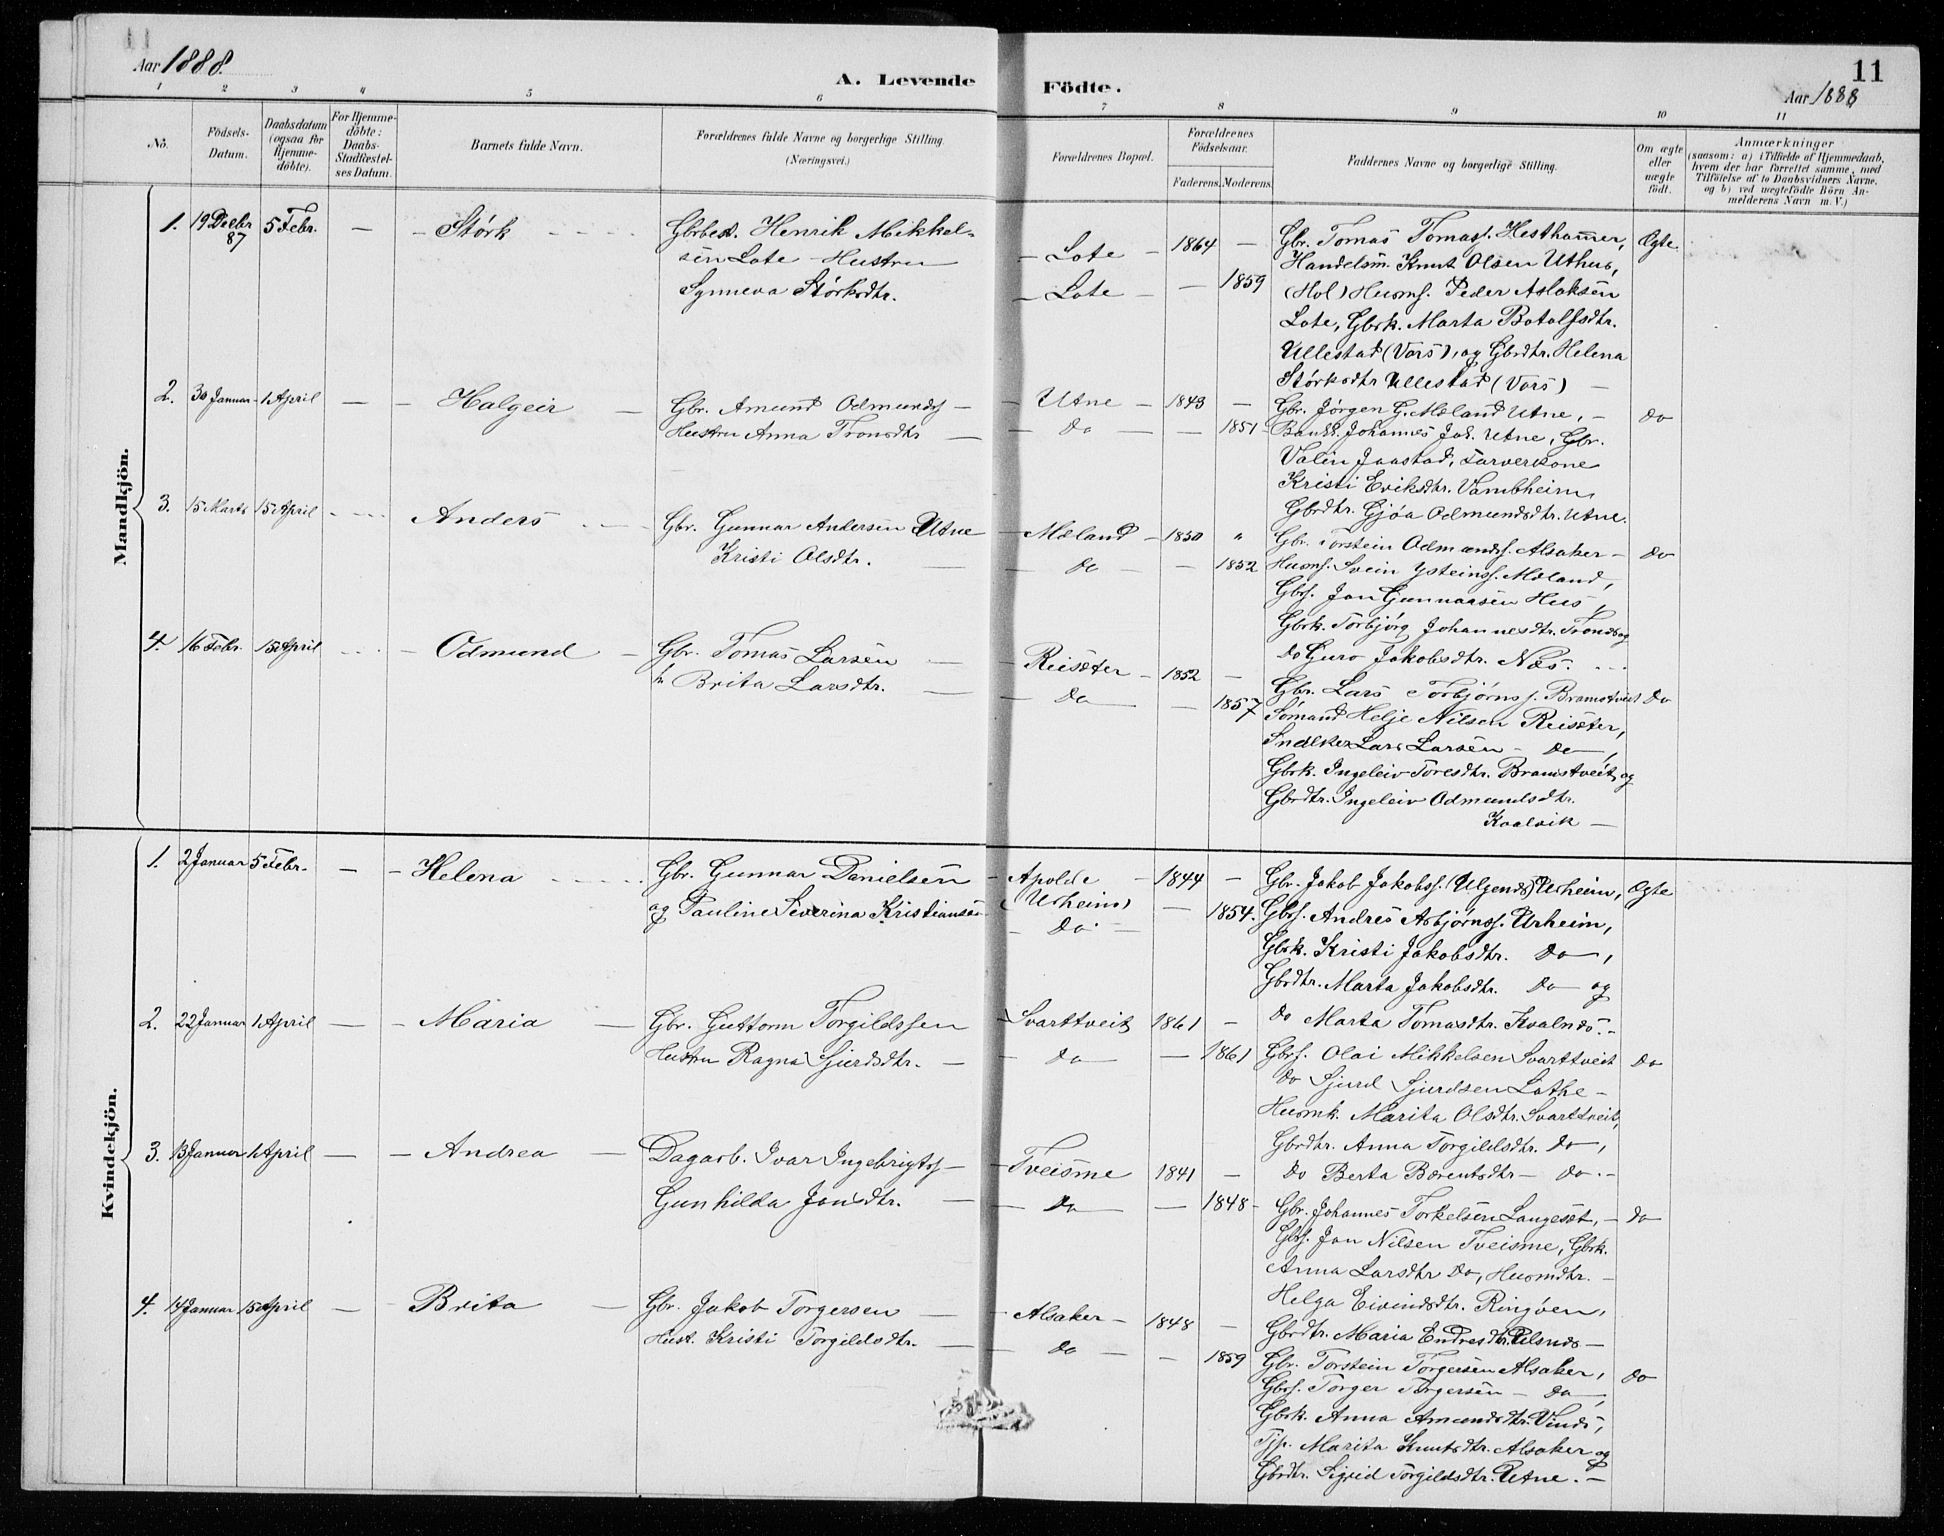 Aar 1888.
A. Levende Födte.
11
Aar 1888
1 2 3 4 5 6 7 8 9 10 11
No.
Födsels-Datum.
Daabsdatum (ogsaa for Hjemme-döbte).
For Hjemme-döbte: Daabs-Stadfæstel-ses Datum.
Barnets fulde Navn.
Forældrenes fulde Navne og borgerlige Stilling (Næringsvei.)
Forældrenes Bopæl.
Forældrenes Födselsaar.
Faderens. Moderens.
Faddernes Navne og borgerlige Stilling.
Om ægte eller uægte födt.
Anmærkninger
(saasom: a) i Tilfælde af Hjemmedaab,
hvem der har forrettet samme, med
Tilföielse af to Daabsvidners Navne,
og b) ved uægtefödte Börn An-
melderens Navn m. V.)
Mandkjön.
1. 19 Decbr 87 5 Febr. — Størk
Gbrbest. Henrik Mikkel-
sen Lote — Hustru
Synneva Størksdtr.
Lote 1864 —
Lote — 1859
Gbr. Tomas Tomass. Hesthammer,
Handelsm. Knut Olsen Uthus,
(Hol) Husms. Peder Aslaksen
Lote, Gbrk. Marta Botolfsdtr.
Ullestad (Vors), og Gbrdtr. Helena
Størksdtr Ullestad (Vors) —
Ægte
2. 30 Januar 1 April — Halgeir
Gbr. Amund Odmunds —
Hustru Anna Tronsdtr —
Utne 1843 —
Do — 1851
Gbr. Jørgen G. Mæland Utne, —
Johannes Joh. Utne, Gbr.
Valin Jaastad, Farverkone
Kristi Eriksdtr. Vambheim,
Gbrdtr. Gjøa Odmundsdtr. Utne.
Do
3. 15 Marts 15 April — Anders
Gbr. Gunnar Andersen Utne
Kristi Olsdtr. —
Mæland 1850 "
Do — 1852
Gbr. Torstein Odmunds. Alsaker —
Husms. Svein Ysteinss. Mæland,
Gbrs. Jon Gunnarsen Hus,
Gbrk. Torbjørg Johannesdtr. Tronds og
Do Guro Jakobsdtr. Næs. —
Do
4. 16 Febr. 15 April — Odmund
Gbr. Tomas Larsen —
h Brita Larsdtr. —
Reisæter 1852 —
Do — 1857
Gbr. Lars Torbjørns s. Bramstveit
Sømand Helje Nilsen Reisæter,
Snedker Lars Larsen — Do,
Gbrk. Ingeleiv Toresdtr. Bramstveit, og
Gbrdtr. Ingeleiv Odmundsdtr.
Kvalvik —
Do
Kvindekjön.
1. 2 Januar 5 Febr. — Helena
Gbr. Gunnar Danielsen
og Pauline Severina Kristians
Apolde
(Urheim) 1844 —
Do. — 1854.
Gbr. Jakob Jakobss. (Ulgenes) Urheim,
Gbrs. Andres Asbjørnss. Urheim,
Gbrk. Kristi Jakobsdtr. Do,
Gbrdtr. Marta Jakobsdtr. Do og
Do Marta Tomasdtr. Kvalnes. —
Ægte
2. 22 Januar 1 April — Maria
Gbr. Guttorm Torgildssen
Hustru Ragna Sjurdsdtr. —
Svarttveit 1861 —
Do — 1861
Gbrs. Olai Mikkelsen Svarttveit
Do Sjurd Sjurdsen Lothe —
Husmk. Marita Olsdtr. Svarttveit,
Gbrdtr. Anna Torgildsdtr. Do,
Do Berta Børentsdtr — Do. —
Do
3. 13 Januar 1 April — Andrea
Dagarb. Ivar Ingebrigts —
Gunhilda Jonsdtr. —
Tveisme 1841 —
Do — 1848 —
Gbr. Johannes Torkelsen Langesæt, —
Gbrs. Jon Nilsen Tveisme, Gbrk.
Anna Larsdtr Do, Husmdtr. —
Helga Eivindsdtr. Ringøen,
Gbrdtr. Maria Endresdtr. —
Do
4. 14 Januar 15 April — Brita
Gbr. Jakob Torgersen —
Hust. Kristi Torgildsdtr. —
Alsaker 1848 —
Do — 1859
Gbr. Torstein Torgersen Alsaker,
Gbrs. Torger Torgersen — Do,
Gbrk. Anna Amundsdtr. Vines,
Tjp. Marita Knutsdtr. Alsaker og
Gbrdtr. Sigrid Torgildsdtr. Utne. —
Do